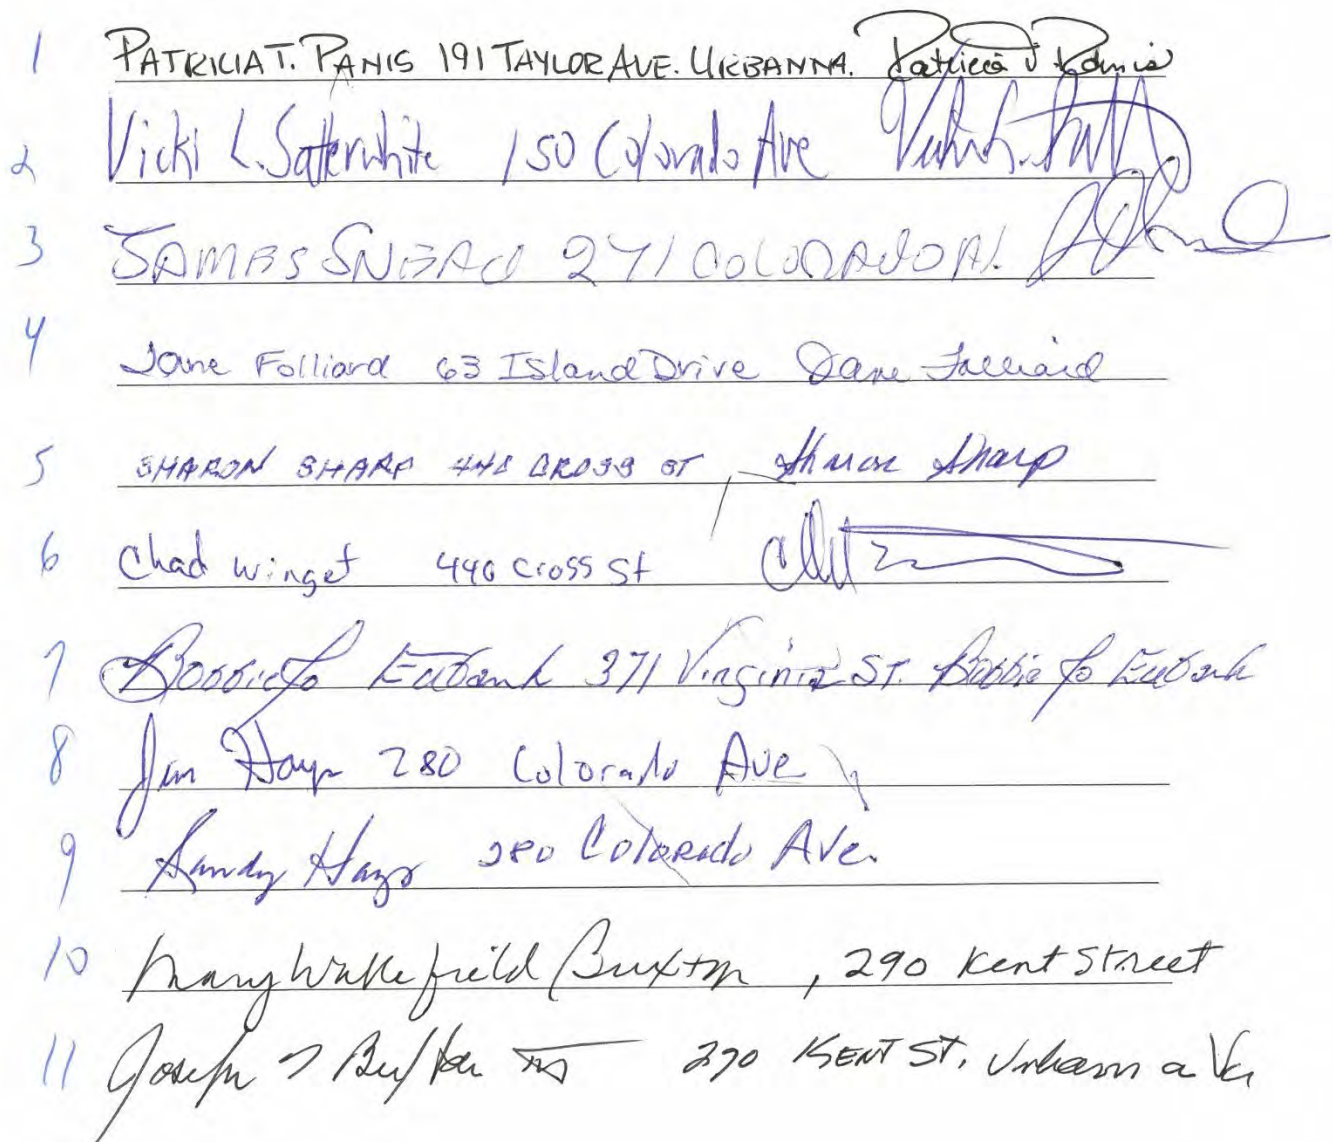 1 PATRICIA T. PANIS 191 TAYLOR AVE. URBANNA. Patricia T Panis
2 Vicki L. Satterwhite 150 Colorado Ave Vicki L.
3 JAMES SNEAD 271 COLORADO AV.
4 Jane Folliard 63 Island Drive Jane Folliard
5 SHARON SHARP 440 CROSS ST Sharon Sharp
6 Chad Winget 440 Cross St
7 Bobbie Jo Eubank 371 Virginia ST. Bobbie Jo Eubank
8 Jim Hays 280 Colorado Ave
9 Sandy Hays 280 Colorado Ave.
10 Mary Wakefield Buxton, 290 Kent Street
11 Joseph Buxton III 290 KENT ST. Urbanna Va